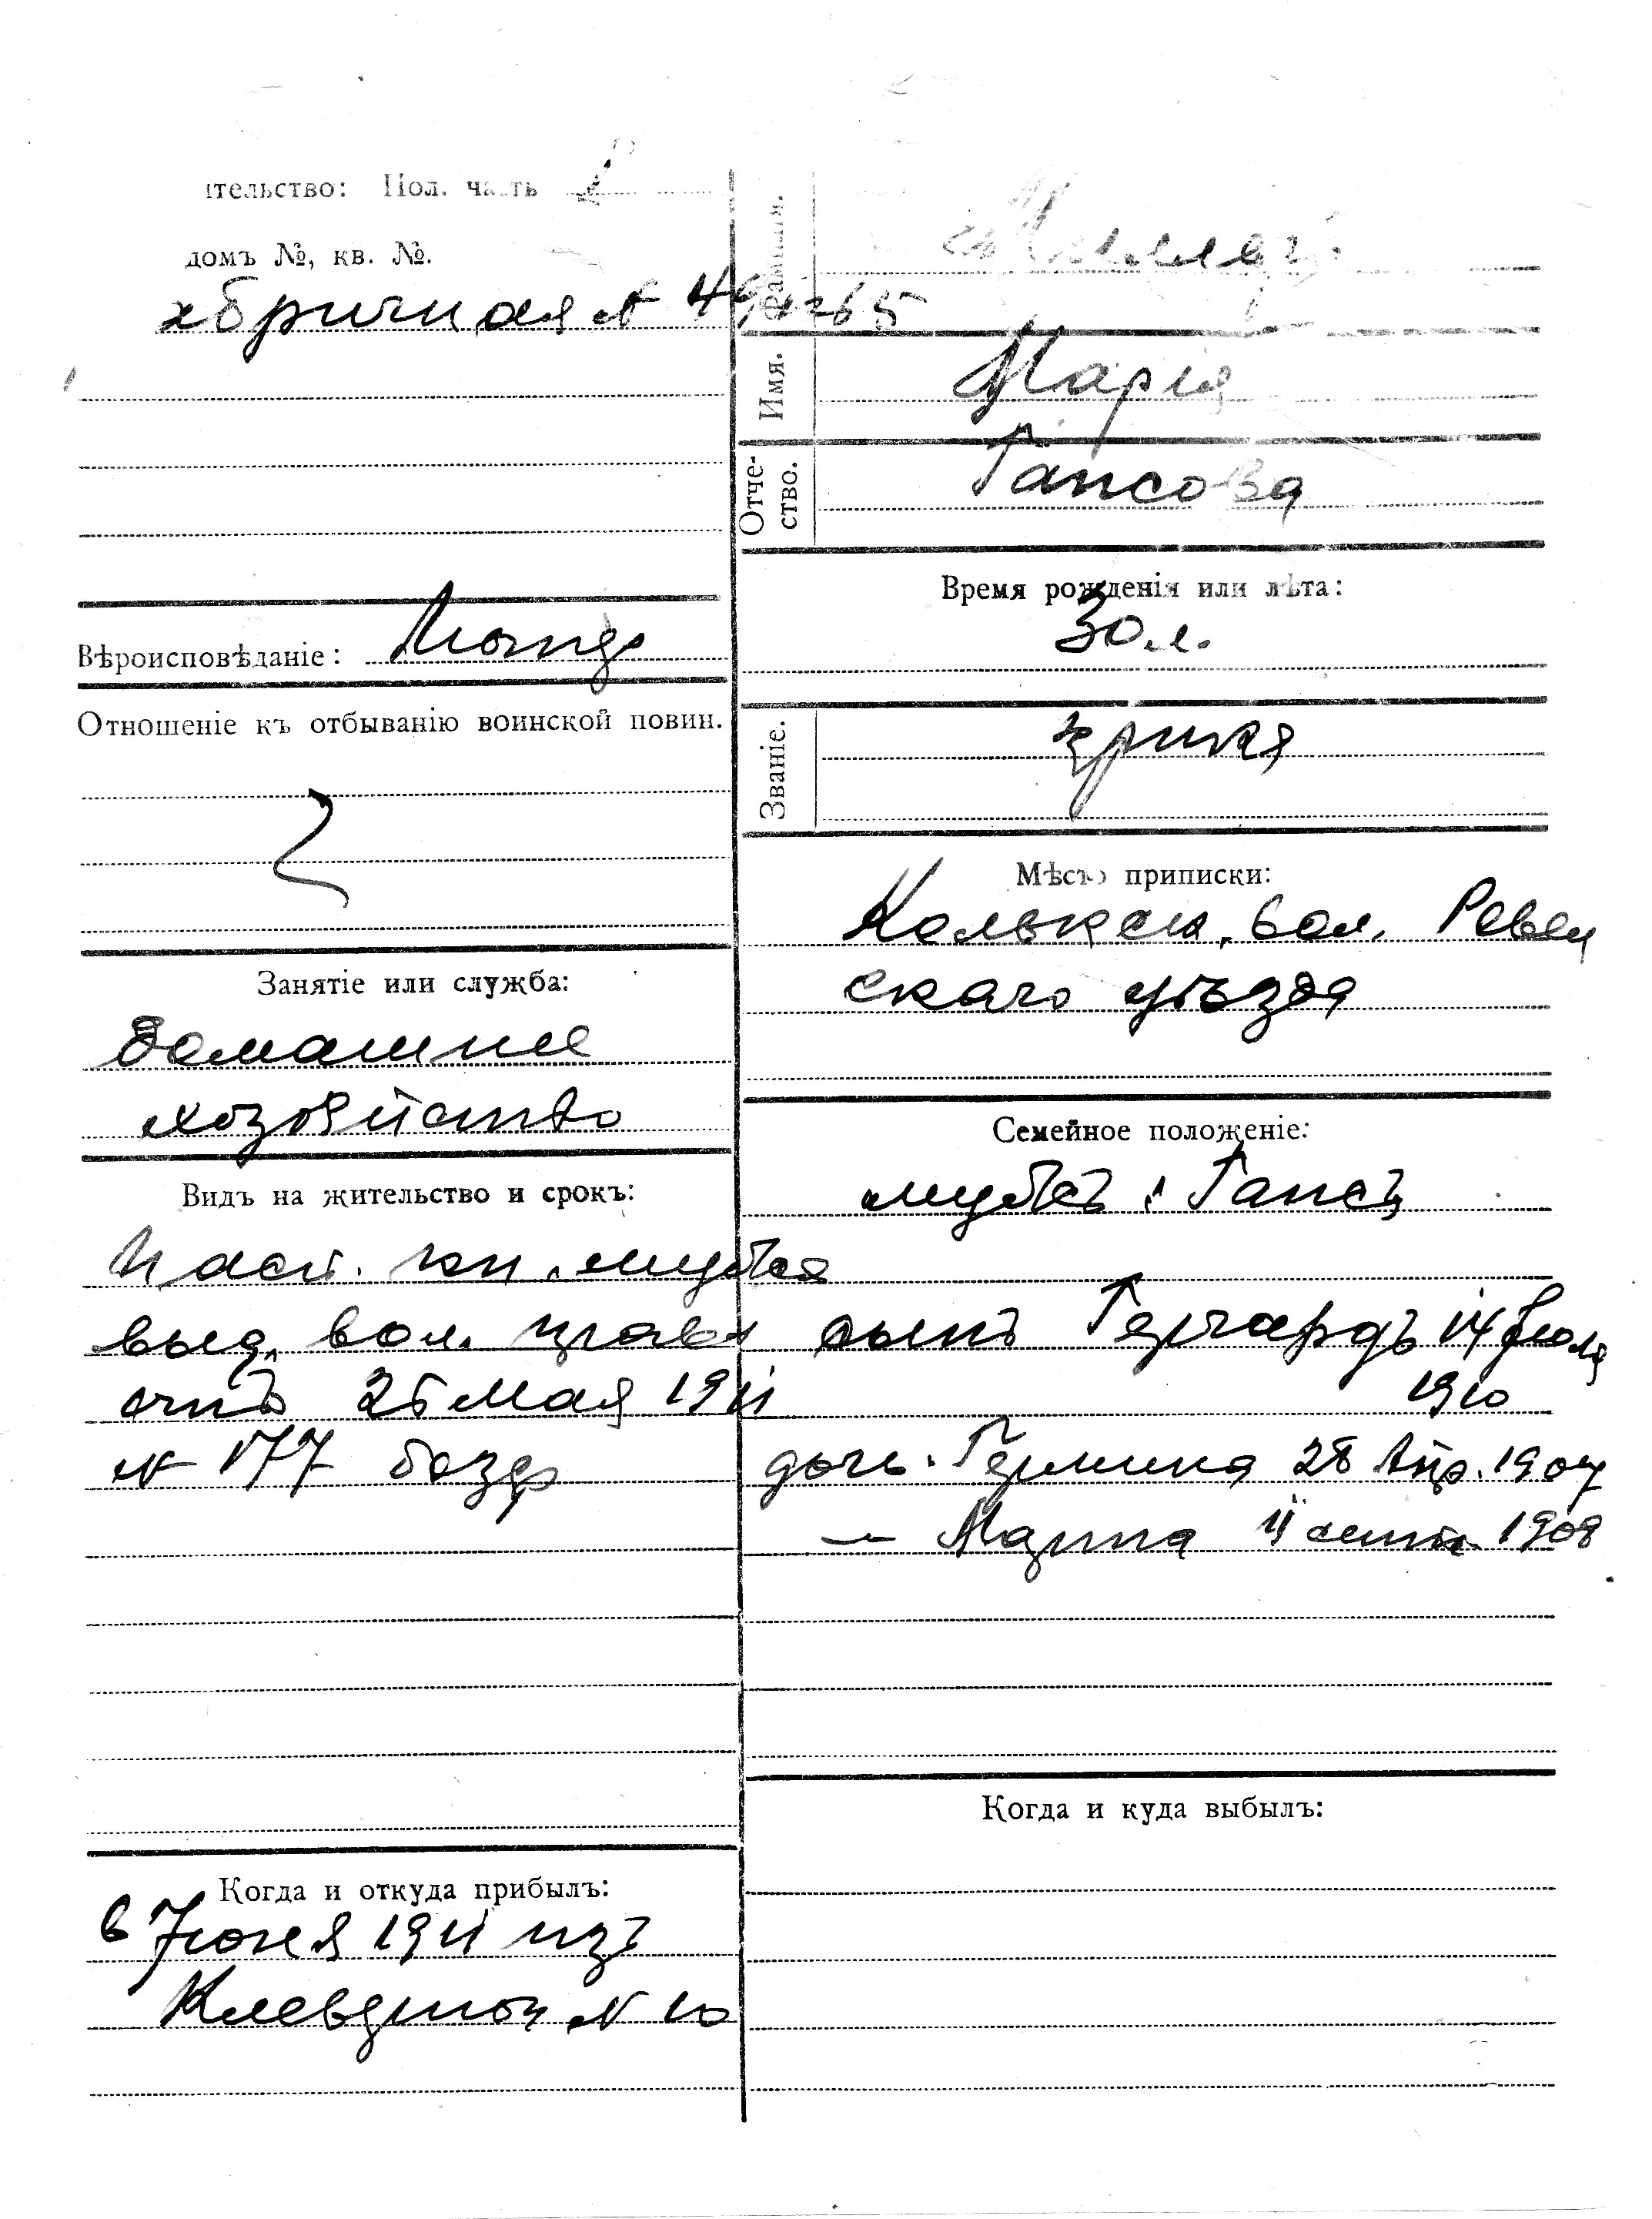 ительство: Пол. часть
домъ №, кв. №.
абричная № 49 кв 5
Вѣроисповѣданіе: Лютер
Отношеніе къ отбыванію воинской повин.
Занятіе или служба:
домашнее
хозяйство
Видъ на жительство и срокъ:
Пасп. кн. мужа
выд. вол. правл
отъ 25 Мая 1911
№ 177 безср
Когда и откуда прибылъ:
6 Іюня 1911 изъ
№ 10
Фамилія. Миллеръ
Имя. Марія
Отчество. Гансова
Время рожденія или лѣта:
30 л.
Званіе. крика
Мѣсто приписки:
Колькск. вол. Ревел
скаго уѣзда
Семейное положеніе:
мужъ: Гансъ
сынъ Гергардъ 14 Іюля
1910
дочь. Гермина 28 Апр. 1907
— Марта 4 сент. 1908
Когда и куда выбылъ: